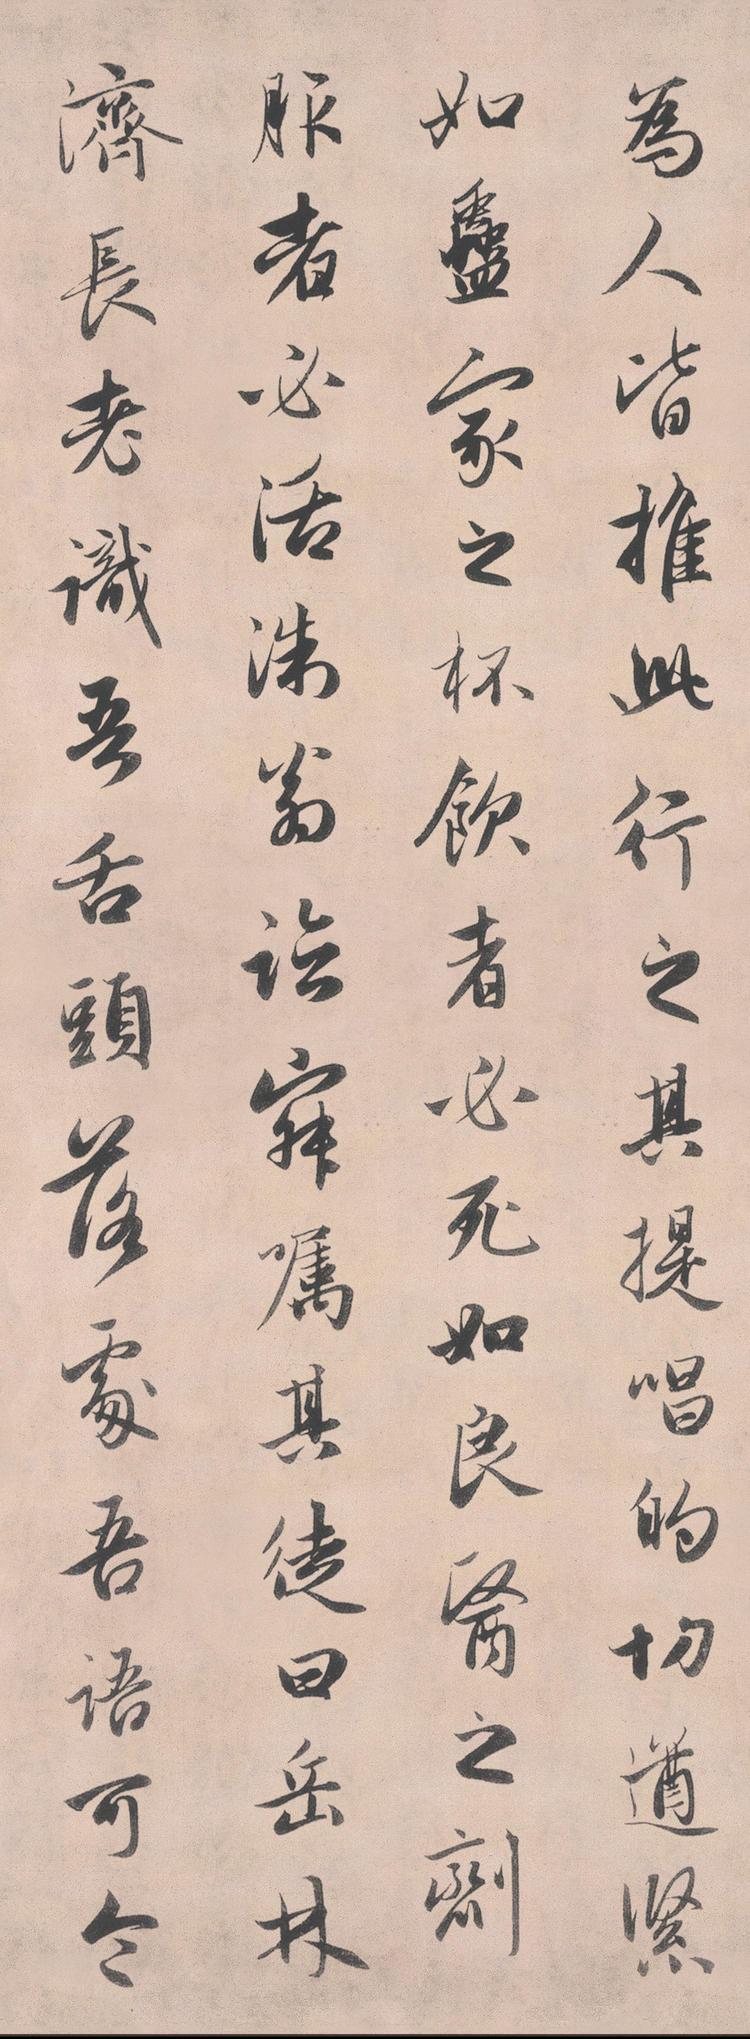 為人皆推此行之其提唱的切遒緊
如蠱家之杯飲者必死如良醫之劑
服者必活洙翁臨寂囑其徒曰岳林
濟長老識吾舌頭落處吾語可令